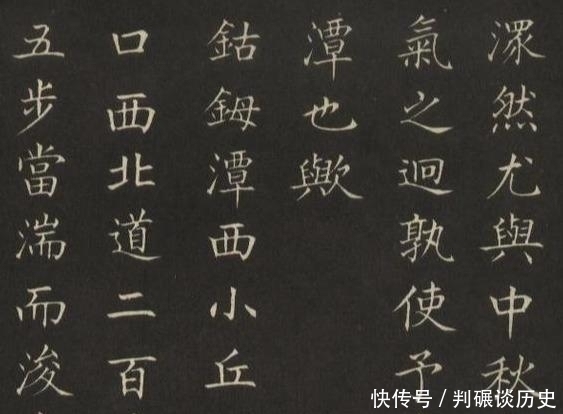 潀然尤與中秋
氣之迥孰使予
潭也歟
鈷鉧潭西小丘
口西北道二百
五步當湍而浚
快传号 / 判碾谈历史